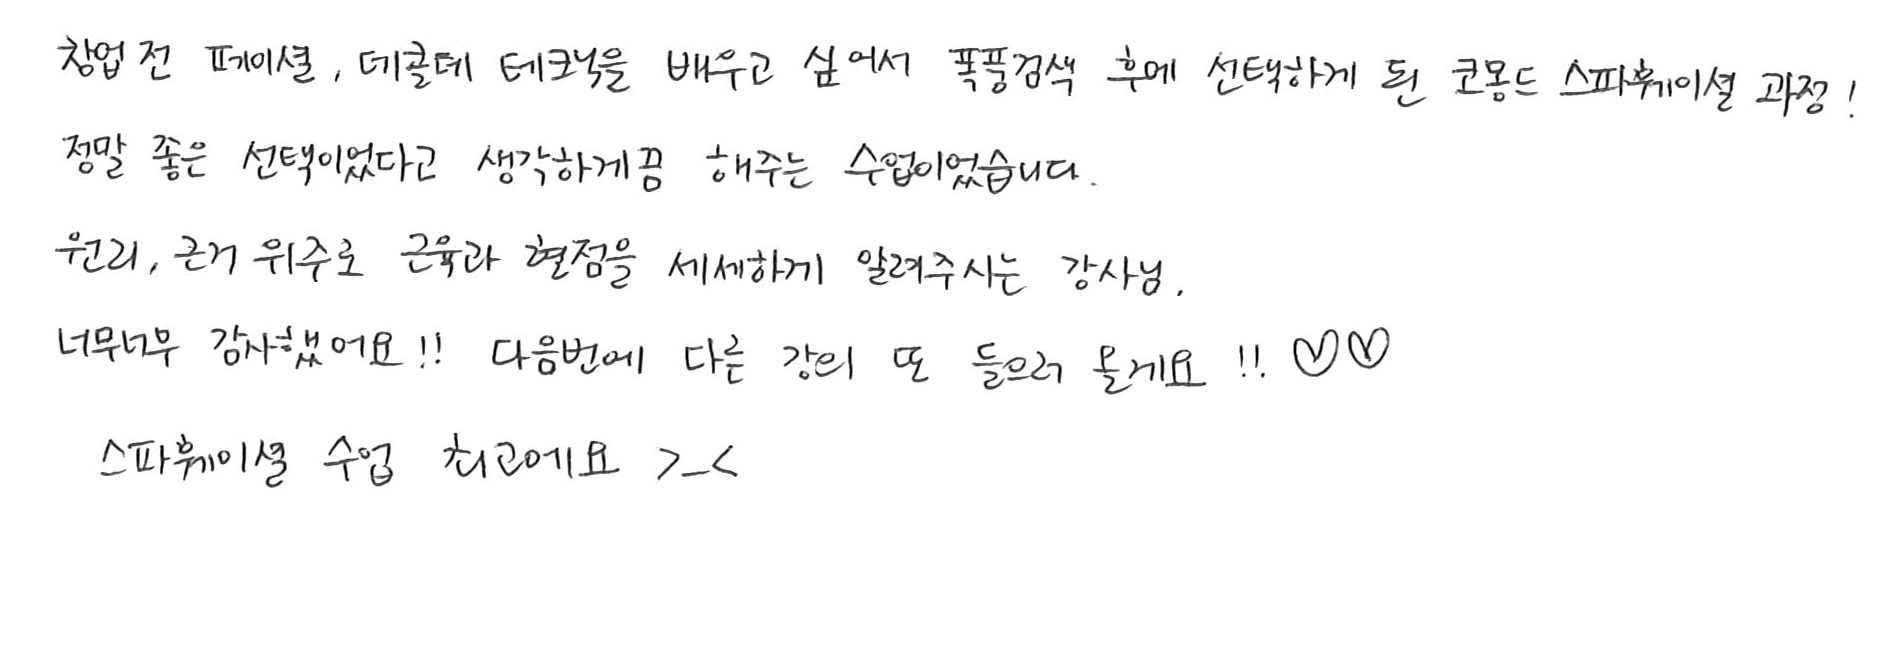 창업 전 페이셜, 데콜테 테크닉을 배우고 싶어서 폭풍검색 후에 선택하게 된 코몽드 스파훼이셜 과정!
정말 좋은 선택이었다고 생각하게끔 해주는 수업이었습니다.
원리, 근거 위주로 근육과 혈점을 세세하게 알려주시는 강사님.
너무너무 감사했어요!! 다음번에 다른 강의 또 들으러 올게요!! ♡♡
스파훼이셜 수업 최고에요 >_<